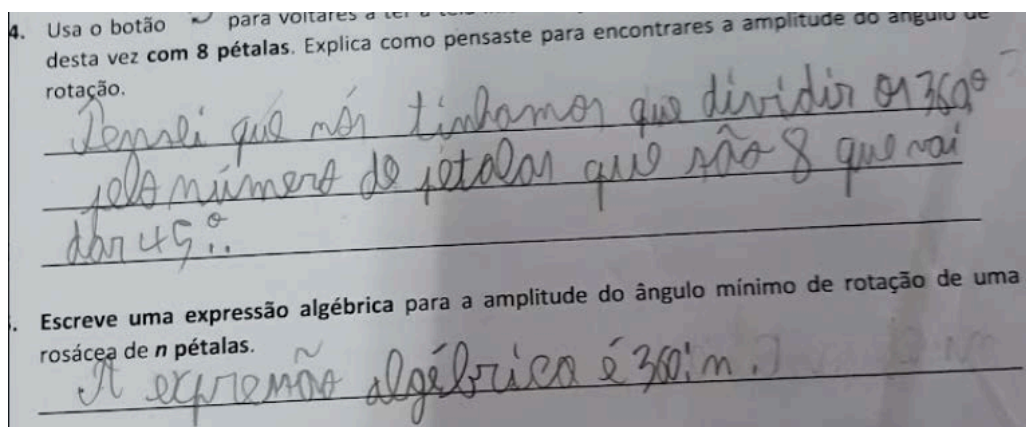 4. Usa o botão para voltares a ter a
desta vez com 8 pétalas. Explica como pensaste para encontrares a amplitude do ângulo de
rotação.
Pensei que nós tinhamos que dividir os 360º
pelo número de pétalas que são 8 que vai
dar 45º.
. Escreve uma expressão algébrica para a amplitude do ângulo mínimo de rotação de uma
rosácea de n pétalas.
A expremão algébrica é 360:n.